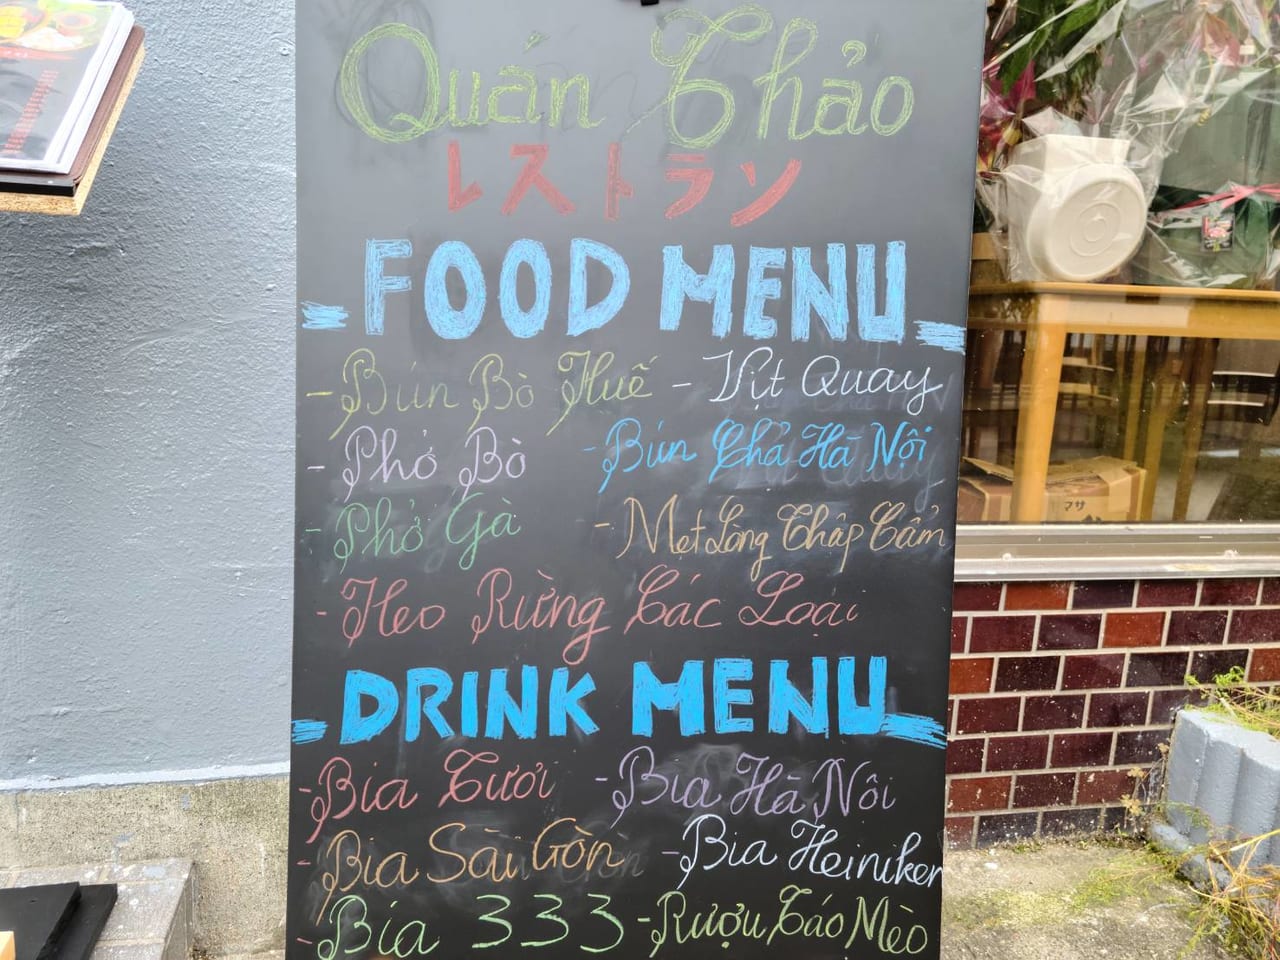 Quán Thảo
レストラン
FOOD MENU
- Bún Bò Huế - Vịt Quay
- Phở Bò - Bún Chả Hà Nội
- Phở Gà - Mẹt Lòng Thâp Cẩm
- Heo Rừng Các Loại
DRINK MENU
- Bia Tươi - Bia Hà Nôi
- Bia Sài Gòn - Bia Heiniker
- Bia 333 - Rượu Táo Mèo
マサ